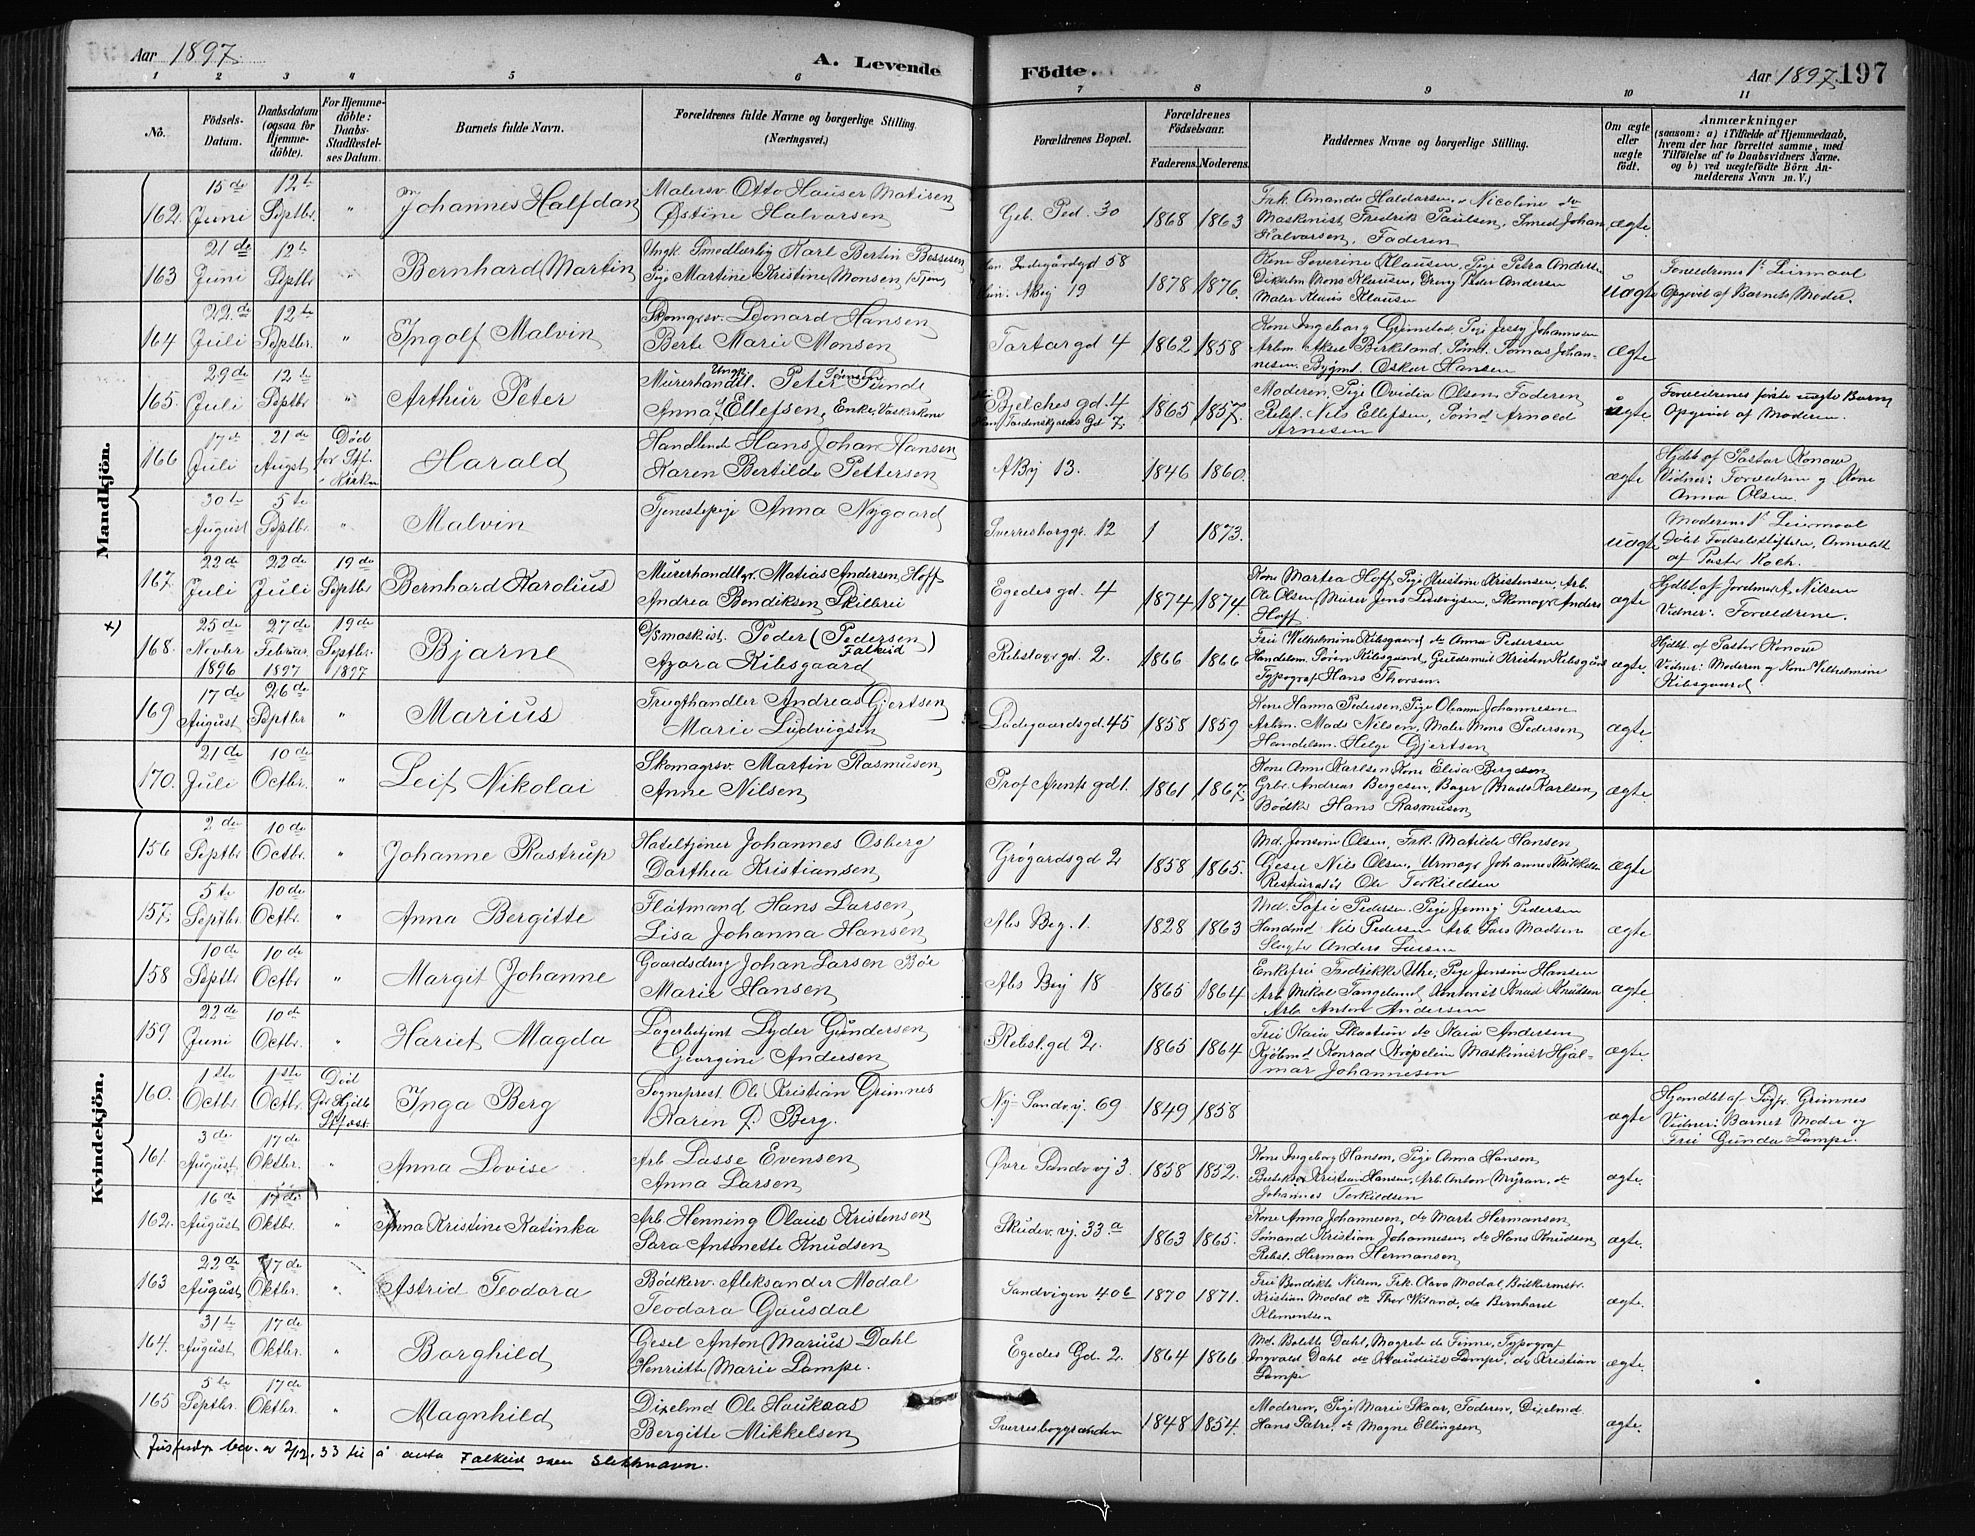 Aar 1897.
A. Levende
Födte.
Aar 1897. 197
1 2 3 4 5 6 7 8 9 10 11
No.
Födsels-Datum.
Daabsdatum (ogsaa for Hjemme-döbte).
For Hjemme-döbte: Daabs-Stadfestel-ses Datum.
Barnets fulde Navn.
Forældrenes fulde Navne og borgerlige Stilling. (Næringsvei.)
Forældrenes Bopæl.
Forældrenes Födselsaar.
Faderens. Moderens.
Faddernes Navne og borgerlige Stilling.
Om ægte eller uægte födt.
Anmærkninger
(saasom: a) i Tilfælde af Hjemmedaab, hvem der har forrettet samme, med Tilföielse af to Daabsvidners Navne. og b) ved uægtefödte Börn An-melderens Navn m. V.)
Mandkjön.
162. 15de Juni 12te Septbr. " Johannes Halfdan
Malersv. Otto Hauser Matisen
Østine Halvorsen
Geb. Ped. 30 1868 1863
Frk. Amanda Haldorsen, Nicoline do
Maskinist Fredrik Paulsen, Smed Johan
Halvorsen, Faderen
ægte.
163 21de Juni 12te Septbr Bernhard Martin
Ungk. Smedlærlg Karl Bertin Bessesen
Pige Martine Kristine Monsen
Ladegårdsgd 58
19 1878 1876.
Kone Severine Klausen, Pige Petra Andersen
Mons Klausen, Dreng Peder Andersen
Maler Klaus Klausen
uægte
Forældrenes 1ste Leiermaal
Opgivet af Barnets Moder.
164 22de Juli 12te Septbr. " Ingolf Malvin
Skomgrsv. Leonard Hansen
Berte Marie Monsen
Tartargd 4 1862 1858
Kone Ingeborg Grimstad, Pige Jessy Johannesen
Arbm Aksel Birkeland, Sømd. Tomas Johan-
nesen. Bygmd. Oskar Hansen
ægte.
165. 29de Juli 12te Septbr. " Arthur Peter
Murerhandtl. Ungk. Peter Sunde
Anna Ellefsen, Enke, Vaskekone
gd. 4
Tordenskjolds Gd 7. 1865 1857.
Moderen, Pige Ovidia Olsen, Faderen
Rebsl. Nils Ellefsen, Sømd Arnold
Arnesen
uægte.
Forældrenes første uægte Barn,
Opgivet af Moderen.
166 17de Juli 21de Augst Død Harald
Handlende Hans Johan Hansen
Karen Bertilde Pettersen
13. 1846 1860.
ægte
Hjdbt. af Pastor Konow
Vidner: Forældren og Kone
Anna Olsen.
30te August 5te Septbr. " Malvin
Tjenestepige Anna Nygaard
Sverresborggt. 12 1 1873.
uægte
Moderens 1ste Leiermaal
Født Fødselsstiftelsen, Anmeldt
af Pastor Koch.
167. 22de Juli 22de Juli 19de Septbr Bernhard Karolius
Murerhandtlgr. Matias Andersen Hoff
Andrea Bendiksen Skilbrei
Egedes gd. 4 1874 1874.
Kone Martea Hoff, Pige Kristine Kristensen, Arb.
Ole Olsen, Murer Jens Ludvigsen, Skomagr Anders
Hoff
ægte
Hjdbt. af Jordmor A. Nilsen
Vidner: Forældrene.
x)
168. 25de Novbr 1896 27de Februar 1897 19de Septbr. 1897 Bjarne
Peder (Pedersen) Falkeid
Azora Kibsgaard
Rebslagr gd. 2. 1866 1866
Fru Wilhelmine Kibsgaard do Anna Pedersen
Handelsm. Søren Kibsgaard, Guldsmed Kristen Kibsgård
Typograf Hans Thorsen.
ægte.
Hjdbt. af Pastor Konow
Vidner: Moderen og Kone Vilhelmine
Kibsgaard.
169 17de August 26de Septbr " Marius
Frugthandler Andreas Gjertsen
Marie Ludvigsen
Ladegaardsgd. 45 1858 1859
Kone Hanna Pedersen, Pige Oleanna Johannesen
Arbm. Mads Nilsen, Maler Mons Pedersen,
Handelsm. Helge Gjertsen
ægte.
170. 21de Juli 10de Octbr. " Leif Nikolai
Skomagrsv. Martin Rasmusen,
Anne Nilsen
Prof Arents gd 1. 1861 1867.
Kone Anne Karlsen, Kone Elisa Bergesen
Andreas Bergesen, Bager Mads Karlsen,
Bødkr Hans Rasmusen
ægte.
Kvindekjön.
156 2de Septbr 10de Octbr. " Johanne Rastrup
Hoteltjener Johannes Osberg
Dorthea Kristiansen
Grøgardsgd 2 1858 1865.
Md. Jensine Olsen, Frk. Matilde Hansen
Gesel Nils Olsen, Urmagr Johannes Mikkels
Restauratør Ole Torkildsen
ægte
157. 5te Septbr. 10de Octbr. " Anna Bergitte
Flåtmand Hans Larsen
Lisa Johanna Hansen
1. 1828 1863
Md. Sofie Pedersen. Pige Jenny Pedersen
Handmd Nils Pedersen Arb. Lars Madsen
Slagter Anders Larsen
ægte
158 10de Septbr 10de Octbr. " Margit Johanne
Gaardsdreng Johan Larsen Bøe
Marie Hansen
18 1865 1864
Enkefru Fredrikke Uhe, Pige Jensine Hansen
Arb. Mikal Tangeland, Kontorist Knud Knudsen
Arb. Anton Andersen
ægte.
159 22de Juni 10de Octbr. " Hariet Magda
Lagerbetjent Lyder Gundersen
Georgine Andersen
Rebsl.gd 2. 1865 1864
Fru Kaia Skartun do Kaia Andersen
Kjøbmd Konrad Krøpelein Maskinist Hjal-
mar Johannesen
ægte
160. 1ste Octbr 1ste Octbr. Død Inga Berg
Sogneprest. Ole Kristian Grimnes
Karen J. Berg.
Ny-Sandvj. 69 1849 1858
ægte
Hjemdbt af Sogpr. Grimnes
Vidner: Barnets Moder og
Fru Gunda Lampe.
161. 3de August. 17de Oktbr. " Anna Lovise
Arb. Lasse Evensen
Anna Larsen
Øvre Sandv vj 3. 1858 1852.
Kone Ingeborg Hansen, Pige Anna Hansen,
Kristian Hansen, Arb. Anton Myran, do
Johannes Torkildsen
ægte.
162. 16de August. 17de Oktbr. " Anna Kristine Katinka
Arb Henning Olaus Kristensen
Sara Antonette Knudsen
Skudev. vj. 33.a 1863 1865.
Kone Anna Johannesen, do Marte Hermansen
Sømand Kristian Johannesen, do Hans Knudsen,
Rebsl. Herman Hermansen
ægte.
163 22de August 17de Oktbr. ". Astrid Teodora
Bødkersv. Aleksander Modal
Teodora Gausdal
Sandvigen 40b 1870 1871.
Fru Bendikte Nilsen, Frk. Olava Modal, Bødkermstr.
Kristian Modal do Thor Wiland, do Bernhard
Klementsen
ægte.
164. 31te August 17de Oktbr. " Borghild
Gesel Anton Marius Dahl
Henriette Marie Lampe.
Egedes Gd. 2. 1864 1866
Md. Bolette Dahl, Magrete de Finne, Typograf
Ingvald Dahl do Klaudius Lampe, do Kristian
Lampe
ægte.
165 5te Septbr. 17de Oktbr. " Magnhild
Dixelmd Ole Haukaas
Bergitte Mikkelsen,
1848 1854.
Moderen, Pige Marie Skaar, Faderen, Dixelmd
Hans Sætre, do Magne Ellingsen,
ægte.
bev. av 2/12. 33 til å anta Falkeid som slektsnavn.